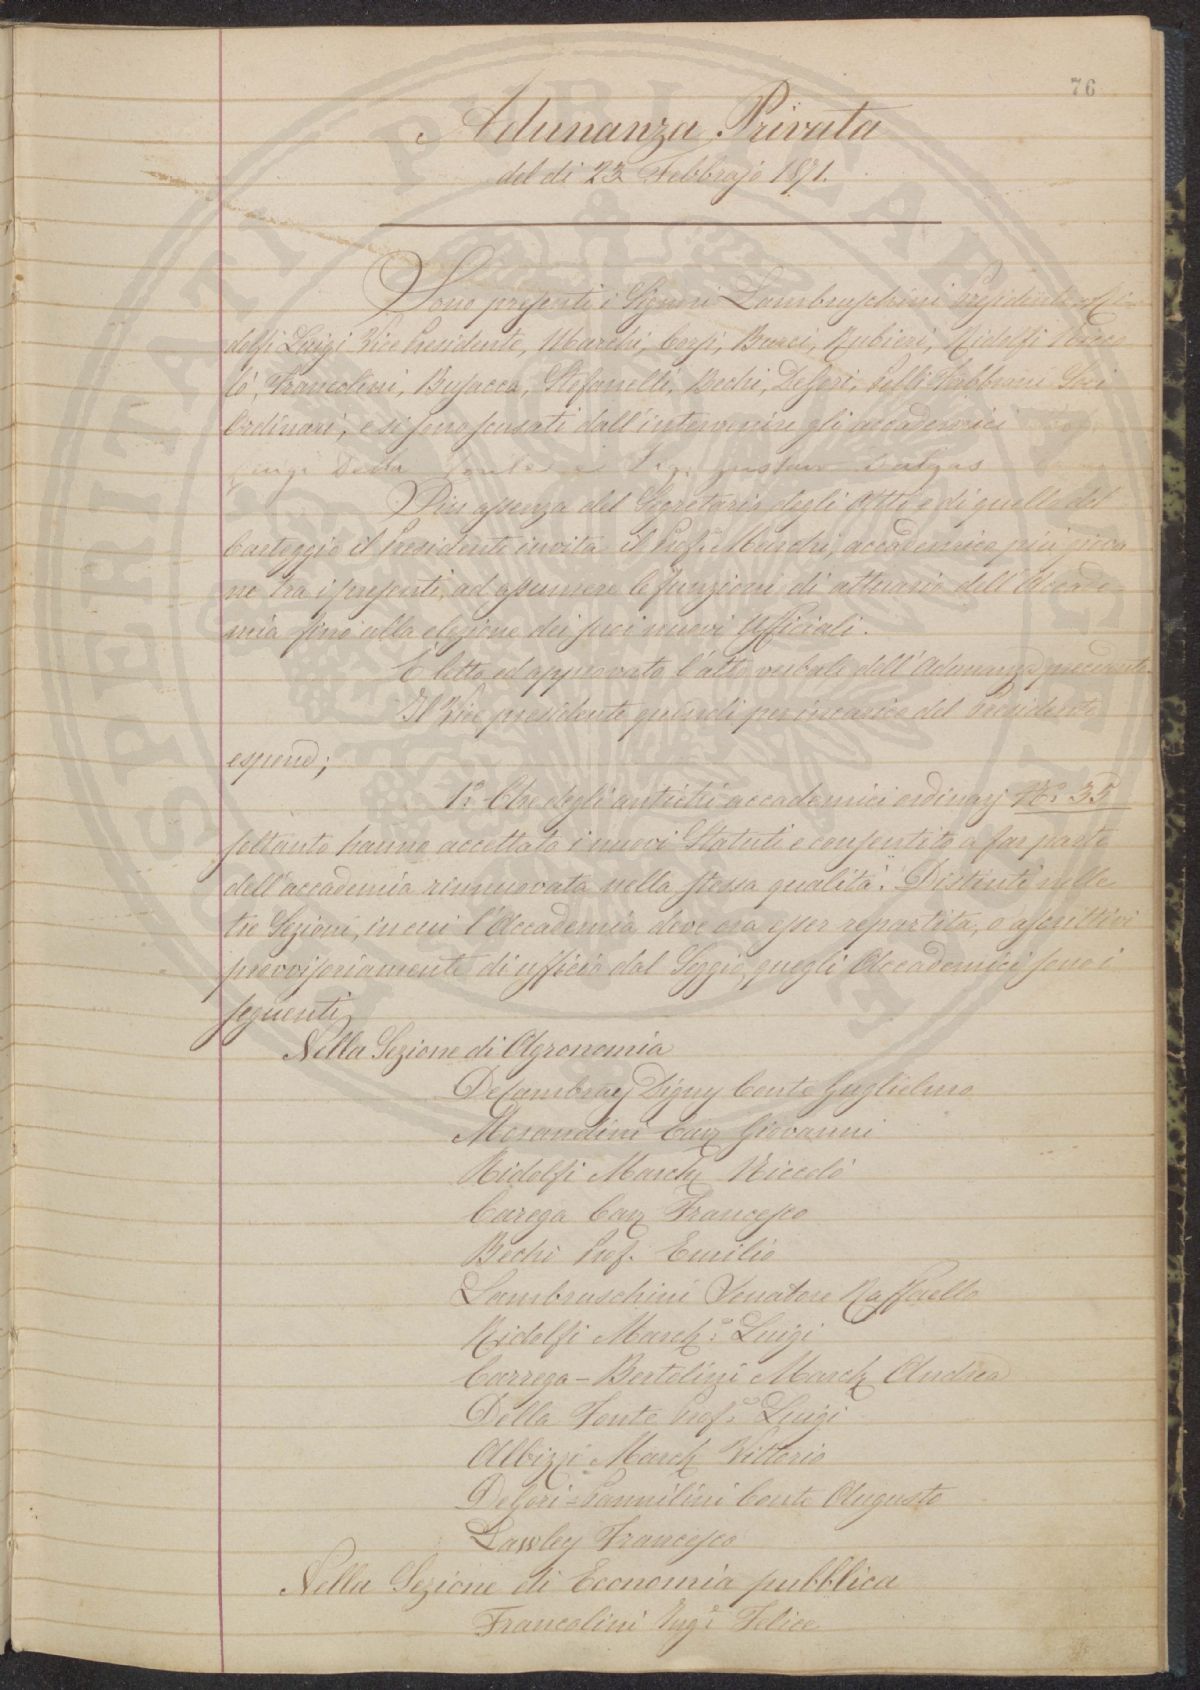 76
Adunanza Privata
del dì 23 Febbrajo 1871.
Sono presenti i Signori Lambruschini Presidente, Ri-
dolfi Luigi Vice Presidente, Marchi, Corsi, Burci, Rubieri, Ridolfi Nicco
lò, Francolini, Busacca, Stefanelli, Bechi, DeGori, Pelli Fabbroni Soci
Ordinari; e si sono scusati dall'intervenire gli accademici
Luigi Della Fonte e Gustavo Dalgas
In assenza del Segretario degli Atti e di quello del
Carteggio il Presidente invita il Prof. Marchi, accademico più giova
ne tra i presenti, ad assumere le funzioni di attuario dell'Accade-
mia fino alla elezione dei suoi nuovi Ufficiali.
È letto ed approvato l'atto verbale dell'Adunanza precedente.
Il Vice presidente quindi per incarico del Presidente
espone;
1º Che degli antichi accademici ordinarj Nº 35
soltanto hanno accettato i nuovi Statuti e consentito a far parte
dell'accademia rinnuovata nella stessa qualità. Distinti nelle
tre Sezioni, in cui l'Accademia deve ora esser repartita, o ascrittivi
provvisoriamente di ufficio dal Seggio, quegli Accademici sono i
seguenti
Nella Sezione di Agronomia
DeCambray Digny Conte Guglielmo
Morandini Cav Giovanni
Ridolfi March Niccolò
Carega Cav Francesco
Bechi Prof. Emilio
Lambruschini Senatore Raffaello
Ridolfi March.e Luigi
Carrega-Bertolini March Andrea
Della Fonte Prof.e Luigi
Albizzi March Vittorio
DeGori=Pannilini Conte Augusto
Lawley Francesco
Nella Sezione di Economia pubblica
Francolini Ing.e Felice